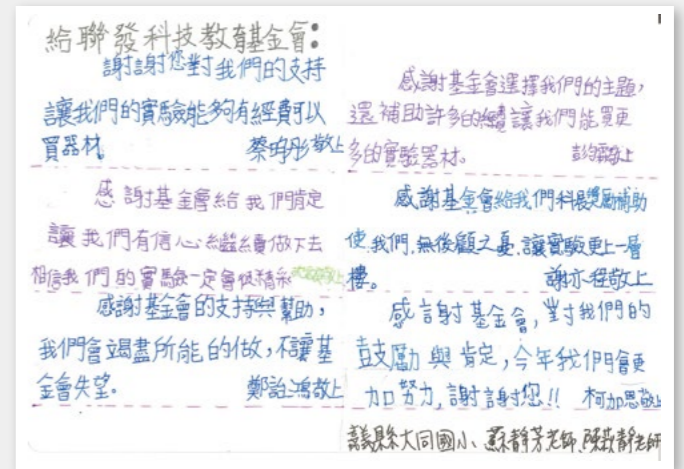 給聯發科技教育基金會：
謝謝您對我們的支持
讓我們的實驗能夠有經費可以
買器材。 蔡玥彤敬上
感謝基金會給我們肯定
讓我們有信心繼續做下去
相信我們的實驗一定會很精彩
感謝基金會的支持與幫助，
我們會竭盡所能的做，不讓基
金會失望。 鄭詒鴻敬上
感謝基金會選擇我們的主題，
還補助許多的錢讓我們能買更
多的實驗器材。 敬上
感謝基金會給我們科展獎勵補助
使我們，無後顧之憂，讓實驗更上一層
樓。 謝亦程敬上
感謝基金會，對我們的
鼓勵與肯定，今年我們會更
加努力，謝謝您!! 柯加恩敬上
嘉義縣大同國小、蘇靜芳老師、老師